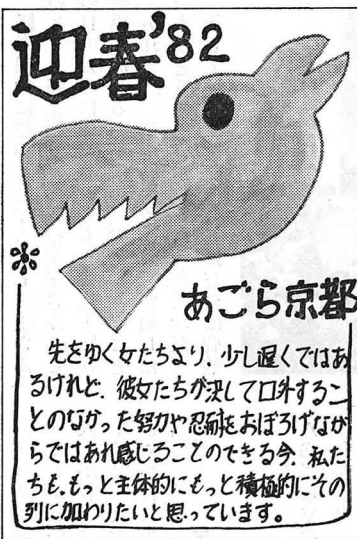 迎春'82
あごら京都
先をゆく女たちより、少し遅くではあ
るけれど、彼女たちが決して口外するこ
とのなかった努力や忍耐をおぼろげなが
らではあれ感じることのできる今、私た
ちも、もっと主体的にもっと積極的にその
列に加わりたいと思っています。